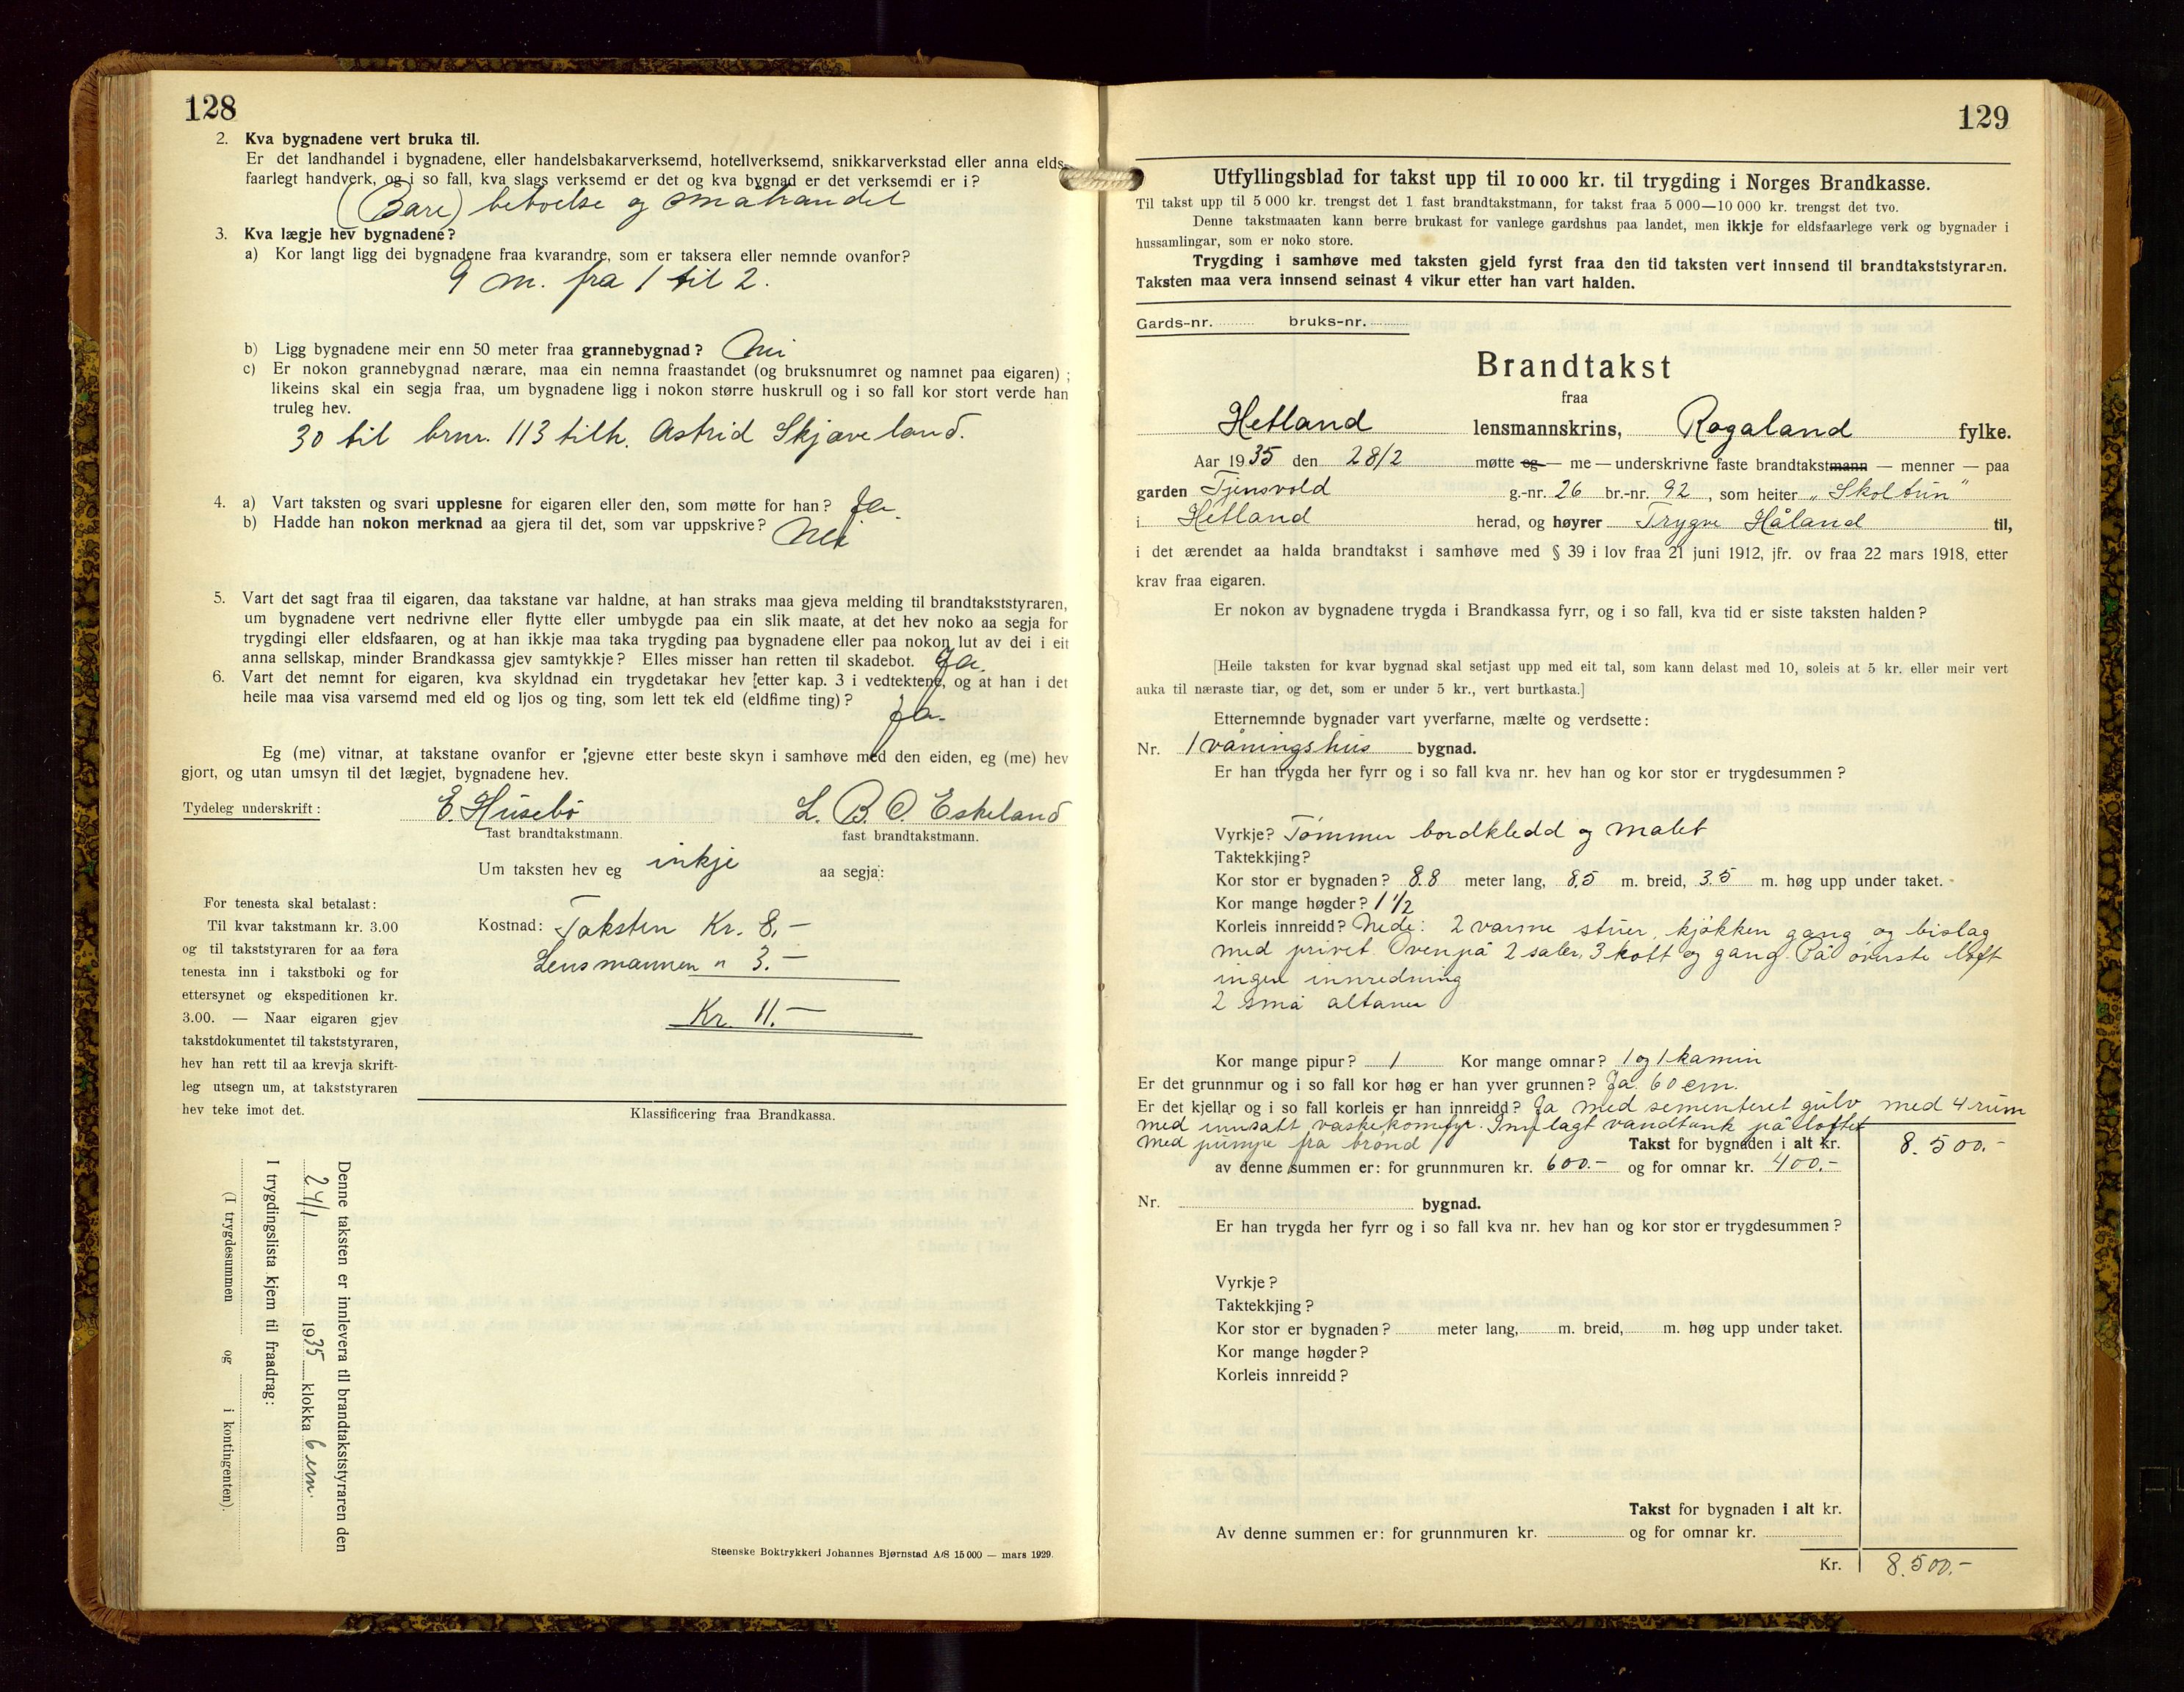 128
2. Kva bygnadene vert bruka til.
Er det landhandel i bygnadene, eller handelsbakarverksemd, hotellverksemd, snikkarverkstad eller anna elds-
faarlegt handverk, og i so fall, kva slags verksemd er det og kva bygnad er det verksemdi er i?
(Bare) beboelse og småhandel
3. Kva lægje hev bygnadene?
a) Kor langt ligg dei bygnadene fraa kvarandre, som er taksera eller nemnde ovanfor?
9 m. fra 1 til 2.
b) Ligg bygnadene meir enn 50 meter fraa grannebygnad? Nei
c) Er nokon grannebygnad nærare, maa ein nemna fraastandet (og bruksnumret og namnet paa eigaren);
likeins skal ein segja fraa, um bygnadene ligg i nokon større huskrull og i so fall kor stort verde han
truleg hev.
30 til brnr. 113 tilh. Astrid Skjæveland.
4. a) Vart taksten og svari upplesne for eigaren eller den, som møtte for han? Ja.
b) Hadde han nokon merknad aa gjera til det, som var uppskrive? Nei
5. Vart det sagt fraa til eigaren, daa takstane var haldne, at han straks maa gjeva melding til brandtakststyraren,
um bygnadene vert nedrivne eller flytte eller umbygde paa ein slik maate, at det hev noko aa segja for
trygdingi eller eldsfaaren, og at han ikkje maa taka trygding paa bygnadene eller paa nokon lut av dei i eit
anna sellskap, minder Brandkassa gjev samtykkje? Elles misser han retten til skadebot. Ja.
6. Vart det nemnt for eigaren, kva skyldnad ein trygdetakar hev etter kap. 3 i vedtektene, og at han i det
heile maa visa varsemd med eld og ljos og ting, som lett tek eld (eldfime ting)?
Ja.
Eg (me) vitnar, at takstane ovanfor er gjevne etter beste skyn i samhøve med den eiden, eg (me) hev
gjort, og utan umsyn til det lægjet, bygnadene hev.
Tydeleg underskrift: E. Husebø L. B. O. Eskeland
fast brandtakstmann. fast brandtakstmann.
Um taksten hev eg inkje aa segja:
For tenesta skal betalast:
Til kvar takstmann kr. 3.00
og til takststyraren for aa føra
tenesta inn i takstboki og for
ettersynet og ekspeditionen kr.
3.00. — Naar eigaren gjev
takstdokumentet til takststyraren,
hev han rett til aa krevja skrift-
leg utsegn um, at takststyraren
hev teke imot det.
Kostnad: Taksten Kr. 8,-
Lensmannen " 3.-
Kr. 11.-
Klassificering fraa Brandkassa.
Denne taksten er innlevera til brandtakststyraren den
24/1 1935 klokka 6 em.
I trygdingslista kjem til fraadrag:
(I trygdesummen og i kontingenten).
Steenske Boktrykkeri Johannes Bjørnstad A/S 15 000 — mars 1929.
129
Utfyllingsblad for takst upp til 10 000 kr. til trygding i Norges Brandkasse.
Til takst upp til 5 000 kr. trengst det 1 fast brandtakstmann, for takst fraa 5 000—10 000 kr. trengst det tvo.
Denne takstmaaten kann berre brukast for vanlege gardshus paa landet, men ikkje for eldsfaarlege verk og bygnader i
hussamlingar, som er noko store.
Trygding i samhøve med taksten gjeld fyrst fraa den tid taksten vert innsend til brandtakststyraren.
Taksten maa vera innsend seinast 4 vikur etter han vart halden.
Gards-nr. bruks-nr.
Brandtakst
fraa
Hetland lensmannskrins, Rogaland fylke.
Aar 1935 den 28/2 møtte eg — me — underskrivne faste brandtakstmann — menner — paa
garden Tjensvold g.-nr. 26 br.-nr. 92, som heiter "Skoltun"
i Hetland herad, og høyrer Trygve Håland til,
i det ærendet aa halda brandtakst i samhøve med § 39 i lov fraa 21 juni 1912, jfr. ov fraa 22 mars 1918, etter
krav fraa eigaren.
Er nokon av bygnadene trygda i Brandkassa fyrr, og i so fall, kva tid er siste taksten halden?
[Heile taksten for kvar bygnad skal setjast upp med eit tal, som kann delast med 10, soleis at 5 kr. eller meir vert
auka til næraste tiar, og det, som er under 5 kr., vert burtkasta.]
Etternemnde bygnader vart yverfarne, mælte og verdsette:
Nr. 1 våningshus bygnad.
Er han trygda her fyrr og i so fall kva nr. hev han og kor stor er trygdesummen?
Vyrkje? Tømmer bordkledd og malet
Taktekkjing?
Kor stor er bygnaden? 8.8 meter lang, 8,5 m. breid, 3.5 m. høg upp under taket.
Kor mange høgder? 1 1/2
Korleis innreidd? Nede: 2 varme stuer, kjøkken gang og bislag
med privet. Ovenpå 2 saler, 3 kott og gang. På øverste loft
ingen innredning
2 små altaner
Kor mange pipur? 1 Kor mange omnar? 1 og 1 kamin
Er det grunnmur og i so fall kor høg er han yver grunnen? Ja. 60 cm.
Er det kjellar og i so fall korleis er han innreidd? Ja med sementeret gulv med 4 rum
med innsatt vaskekomfyr. Innlagt vandtank på loftet
med pumpe fra brønd Takst for bygnaden i alt kr. 8.500.-
av denne summen er: for grunnmuren kr. 600.- og for omnar kr. 400.-
Nr. bygnad.
Er han trygda her fyrr og i so fall kva nr. hev han og kor stor er trygdesummen?
Vyrkje?
Taktekkjing?
Kor stor er bygnaden? meter lang, m. breid, m. høg upp under taket.
Kor mange høgder?
Korleis innreidd?
Takst for bygnaden i alt kr.
Av denne summen er: for grunnmuren kr. og for omnar kr.
Kr. 8.500.-